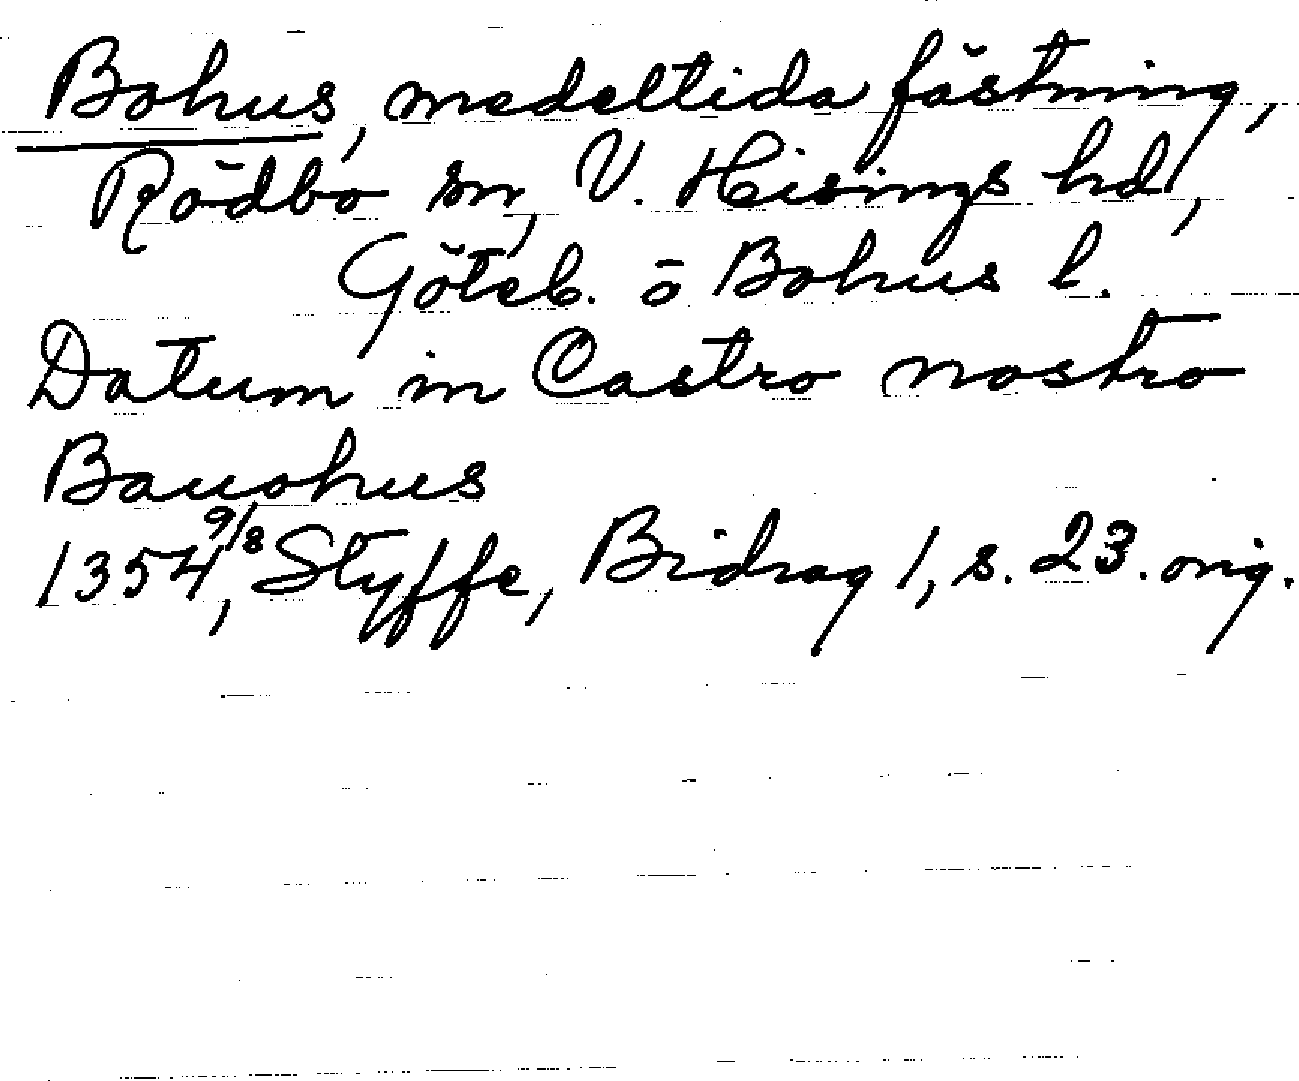 Bohus, medeltida fästning,
Rödbo sn, V. Hisings hd,
Göteb. o Bohus l.
Datum in Castro nostro
Bauohus
1354 9/8, Styffe, Bidrag 1, s. 23. orig.